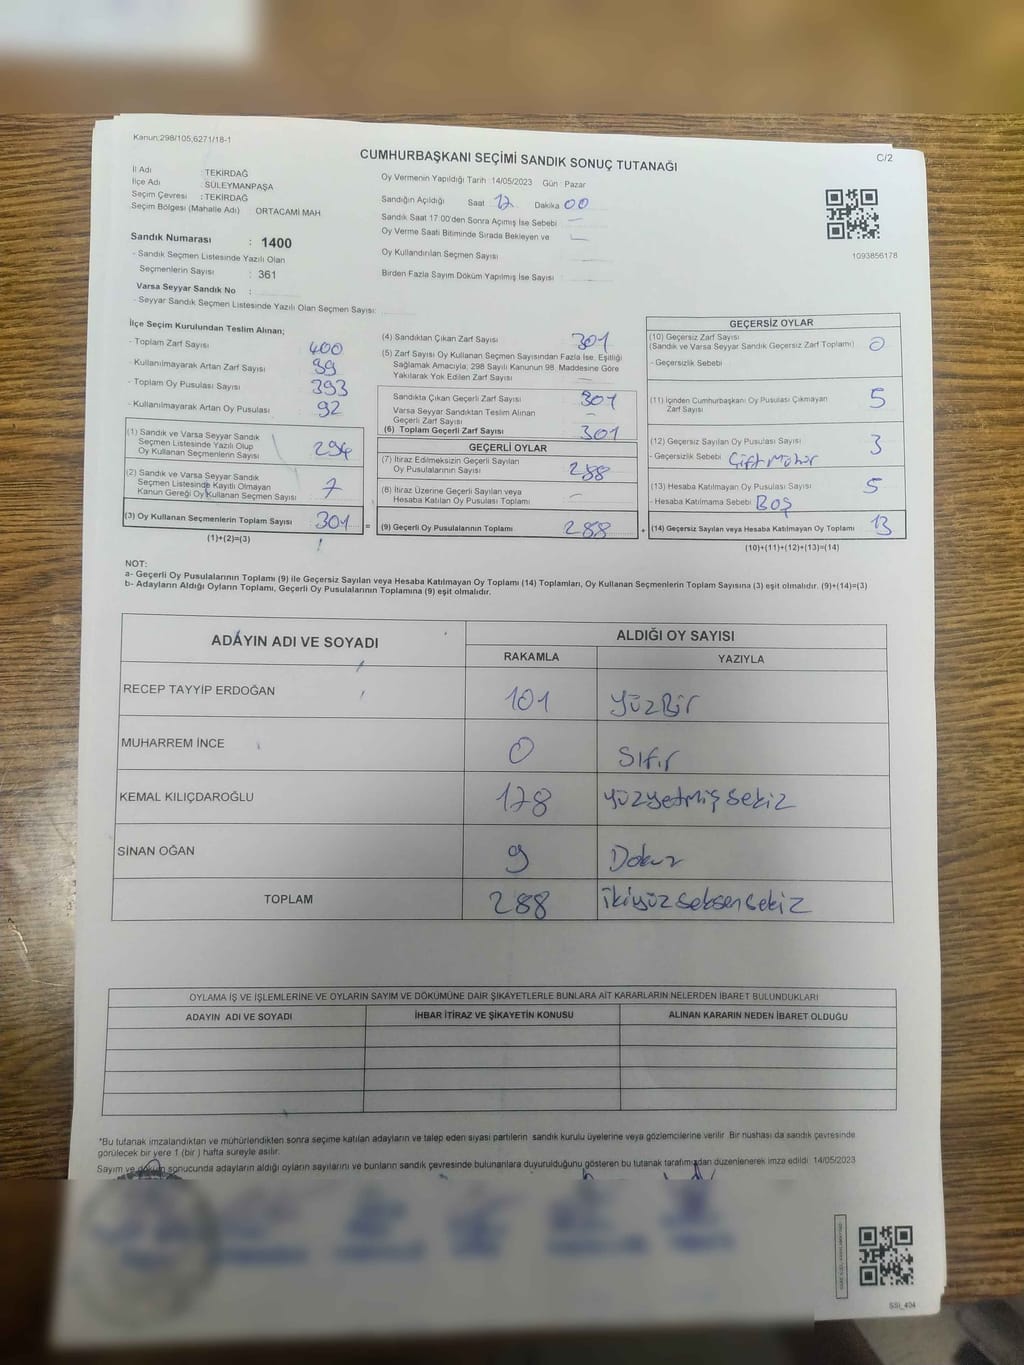 Kanun:298/105,6271/18-1
C/2
CUMHURBAŞKANI SEÇİMİ SANDIK SONUÇ TUTANAĞI
İl Adı : TEKİRDAĞ
İlçe Adı : SÜLEYMANPAŞA
Seçim Çevresi : TEKİRDAĞ
Seçim Bölgesi (Mahalle Adı) ORTACAMİ MAH
Sandık Numarası : 1400
- Sandık Seçmen Listesinde Yazılı Olan
Seçmenlerin Sayısı : 361
Varsa Seyyar Sandık No :
- Seyyar Sandık Seçmen Listesinde Yazılı Olan Seçmen Sayısı:
Oy Vermenin Yapıldığı Tarih : 14/05/2023 Gün Pazar
Sandığın Açıldığı Saat 17 Dakika 00
Sandık Saat 17.00'den Sonra Açımış İse Sebebi —
Oy Verme Saati Bitiminde Sırada Bekleyen ve —
Oy Kullandırılan Seçmen Sayısı
Birden Fazla Sayım Döküm Yapılmış İse Sayısı
1093856178
İlçe Seçim Kurulundan Teslim Alınan;
- Toplam Zarf Sayısı 400
- Kullanılmayarak Artan Zarf Sayısı 99
- Toplam Oy Pusulası Sayısı 393
- Kullanılmayarak Artan Oy Pusulası 92
(1) Sandık ve Varsa Seyyar Sandık
Seçmen Listesinde Yazılı Olup
Oy Kullanan Seçmenlerin Sayısı 294
(2) Sandık ve Varsa Seyyar Sandık
Seçmen Listesinde Kayıtlı Olmayan
Kanun Gereği Oy Kullanan Seçmen Sayısı 7
(3) Oy Kullanan Seçmenlerin Toplam Sayısı 301 =
(1)+(2)=(3)
(4) Sandıktan Çıkan Zarf Sayısı 301
(5) Zarf Sayısı Oy Kullanan Seçmen Sayısından Fazla İse, Eşitliği
Sağlamak Amacıyla, 298 Sayılı Kanunun 98. Maddesine Göre
Yakılarak Yok Edilen Zarf Sayısı —
Sandıkta Çıkan Geçerli Zarf Sayısı 301
Varsa Seyyar Sandıktan Teslim Alınan
Geçerli Zarf Sayısı —
(6) Toplam Geçerli Zarf Sayısı 301
GEÇERLİ OYLAR
(7) İtiraz Edilmeksizin Geçerli Sayılan
Oy Pusulalarının Sayısı 288
(8) İtiraz Üzerine Geçerli Sayılan veya
Hesaba Katılan Oy Pusulası Toplamı —
(9) Geçerli Oy Pusulalarının Toplamı 288 +
GEÇERSİZ OYLAR
(10) Geçersiz Zarf Sayısı
(Sandık ve Varsa Seyyar Sandık Geçersiz Zarf Toplamı) 0
- Geçersizlik Sebebi
(11) İçinden Cumhurbaşkanı Oy Pusulası Çıkmayan
Zarf Sayısı 5
(12) Geçersiz Sayılan Oy Pusulası Sayısı 3
- Geçersizlik Sebebi Çift Mühür
(13) Hesaba Katılmayan Oy Pusulası Sayısı 5
- Hesaba Katılmama Sebebi BOŞ
(14) Geçersiz Sayılan veya Hesaba Katılmayan Oy Toplamı 13
(10)+(11)+(12)+(13)=(14)
NOT:
a- Geçerli Oy Pusulalarının Toplamı (9) ile Geçersiz Sayılan veya Hesaba Katılmayan Oy Toplamı (14) Toplamları, Oy Kullanan Seçmenlerin Toplam Sayısına (3) eşit olmalıdır. (9)+(14)=(3)
b- Adayların Aldığı Oyların Toplamı, Geçerli Oy Pusulalarının Toplamına (9) eşit olmalıdır.
ADAYIN ADI VE SOYADI
ALDIĞI OY SAYISI
RAKAMLA YAZIYLA
RECEP TAYYİP ERDOĞAN 101 YüzBir
MUHARREM İNCE 0 Sıfır
KEMAL KILIÇDAROĞLU 178 yüzyetmişsekiz
SİNAN OĞAN 9 Dokuz
TOPLAM 288 ikiyüzseksensekiz
OYLAMA İŞ VE İŞLEMLERİNE VE OYLARIN SAYIM VE DÖKÜMÜNE DAİR ŞİKAYETLERLE BUNLARA AİT KARARLARIN NELERDEN İBARET BULUNDUKLARI
ADAYIN ADI VE SOYADI İHBAR İTİRAZ VE ŞİKAYETİN KONUSU ALINAN KARARIN NEDEN İBARET OLDUĞU
*Bu tutanak imzalandıktan ve mühürlendikten sonra seçime katılan adayların ve talep eden siyasi partilerin sandık kurulu üyelerine veya gözlemcilerine verilir. Bir nushası da sandık çevresinde
görülecek bir yere 1 (bir ) hafta süreyle asılır.
Sayım ve döküm sonucunda adayların aldığı oyların sayılarını ve bunların sandık çevresinde bulunanlara duyurulduğunu gösteren bu tutanak tarafımızdan düzenlenerek imza edildi. 14/05/2023
SSI_404